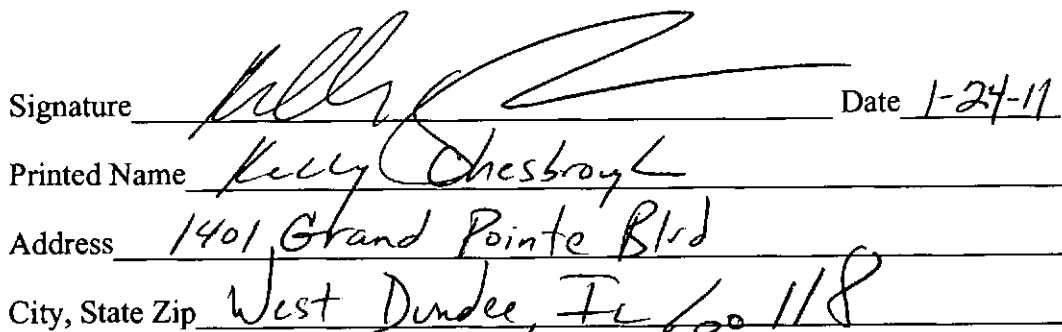 Signature Kelly Date 1-24-11
Printed Name Kelly Chesbrough
Address 1401 Grand Pointe Blvd
City, State Zip West Dundee, IL 60118